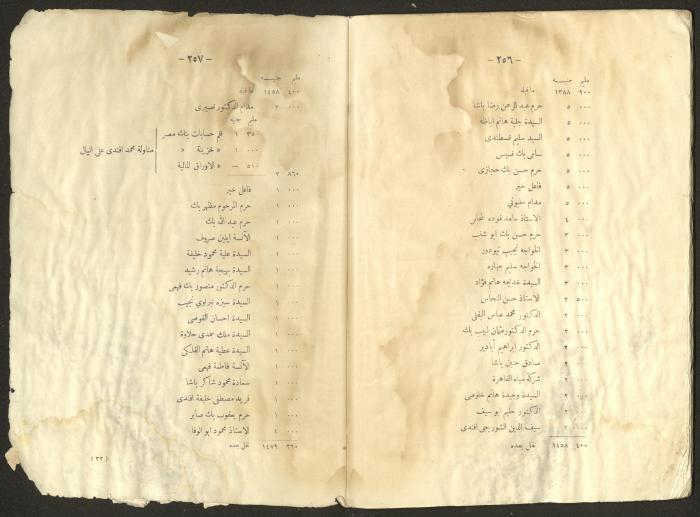 - ٢٥٦ -
مليم جنيـــه
٩٠٠ ١٣٨٨ ما قبله
٠٠٠ ٥ حرم عبد الرحمن رضا باشا
٠٠٠ ٥ السيدة جليلة هانم اباظه
٠٠٠ ٥ السيد سليم قسطندى
٠٠٠ ٥ سامى بك قسيس
٠٠٠ ٥ حرم حسن بك حجازى
٠٠٠ ٥ فاعل خير
٠٠٠ ٥ مدام
٠٠٠ ٤ الاستاذ حامد فوده المحامى
٠٠٠ ٣ حرم حسن بك ابو شنب
٠٠٠ ٣ الخواجه نجيب تيودور
٠٠٠ ٣ الخواجه سليم جباره
٠٠٠ ٣ السيدة خديجه هانم فؤاد
٥٠٠ ٢ الاستاذ حسن النحاس
٠٠٠ ٢ الدكتور محمد عباس
٠٠٠ ٢ حرم الدكتور عثمان لبيب بك
٠٠٠ ٢ الدكتور ابراهيم أبادير
٠٠٠ ٢ صادق حنين باشا
٠٠٠ ٢ شركة مياه القاهرة
٠٠٠ ٢ السيدة وحيدة هانم خلوصى
٠٠٠ ٢ الدكتور حليم ابو سيف
٠٠٠ ٢ سيف الدين الشوربجى افندى
٤٠٠ ١٤٥٨ نقل بعده
- ٢٥٧ -
مليم جنيـــه
٤٠٠ ١٤٥٨ ما قبله
٠٠٠ ٢ مدام الدكتور نصيرى
مليم جنيه
٣٥٠ ١ قلم حسابات بنك مصر
٠٠٠ ١ « خزينة «
٥١٠ — « الاوراق المالية
مناولة محمد افندى على
٨٦٠ ٢
٠٠٠ ١ فاعل خير
٠٠٠ ١ حرم المرحوم مظهر بك
٠٠٠ ١ حرم عبد الله بك
٠٠٠ ١ الآنسة ايلين صروف
٠٠٠ ١ السيدة علية محمود خليفة
٠٠٠ ١ السيدة بهيجة هانم رشيد
٠٠٠ ١ حرم الدكتور منصور بك فهمى
٠٠٠ ١ السيدة سيزه نبراوى نجيب
٠٠٠ ١ السيدة احسان القوصى
٠٠٠ ١ السيدة ملك سعدى حلاوة
٠٠٠ ١ السيدة عطية هانم الفلكى
٠٠٠ ١ الآنسة فاطمة فهمى
٠٠٠ ١ سعادة محمود شاكر باشا
٠٠٠ ١ فريد مصطفى خليفة افندى
٠٠٠ ١ حرم يعقوب بك صابر
٠٠٠ ١ الاستاذ محمود ابو الوفا
٢٦٠ ١٤٧٩ نقل بعده
(٣٣)